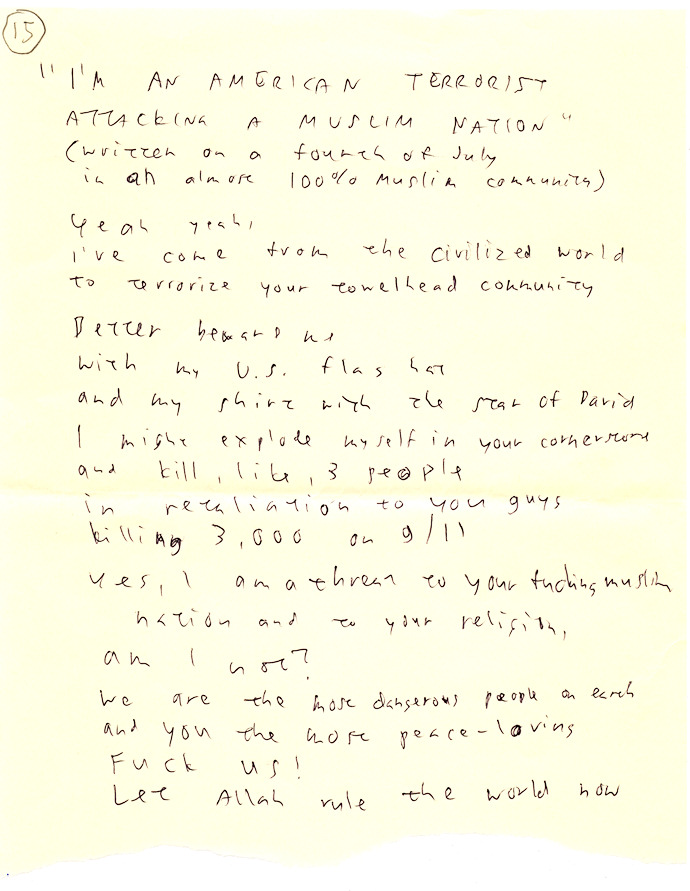 15
"I'M AN AMERICAN TERRORIST
ATTACKING A MUSLIM NATION"
(written on a fourth of July
in an almost 100% Muslim community)
Yeah yeah,
I've come from the civilized world
to terrorize your towelhead community
Better beware me
with my U.S. flag hat
and my shirt with the star of David
I might explode myself in your cornerstore
and kill, like, 3 people
in retaliation to you guys
killing 3,000 on 9/11
Yes, I am a threat to your fucking muslim
nation and to your religion,
am I not?
We are the most dangerous people on earth
and you the most peace-loving
Fuck us!
Let Allah rule the world now